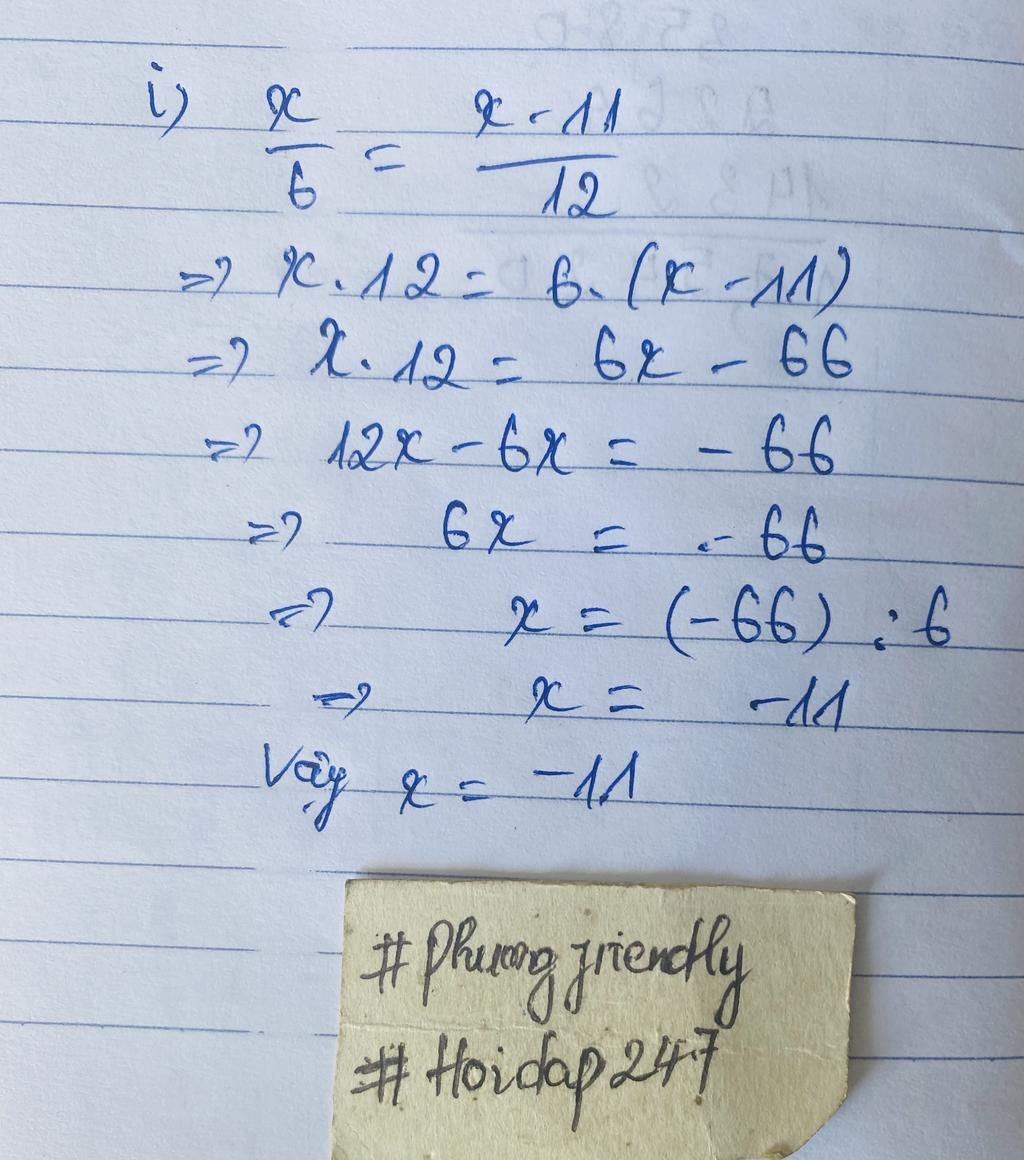 i) x/6 = x - 11/12
=> x . 12 = 6 . (x - 11)
=> x . 12 = 6x - 66
=> 12x - 6x = - 66
=> 6x = - 66
=> x = (-66) : 6
=> x = -11
Vậy x = -11
# Phuong friendly
# Hoidap247